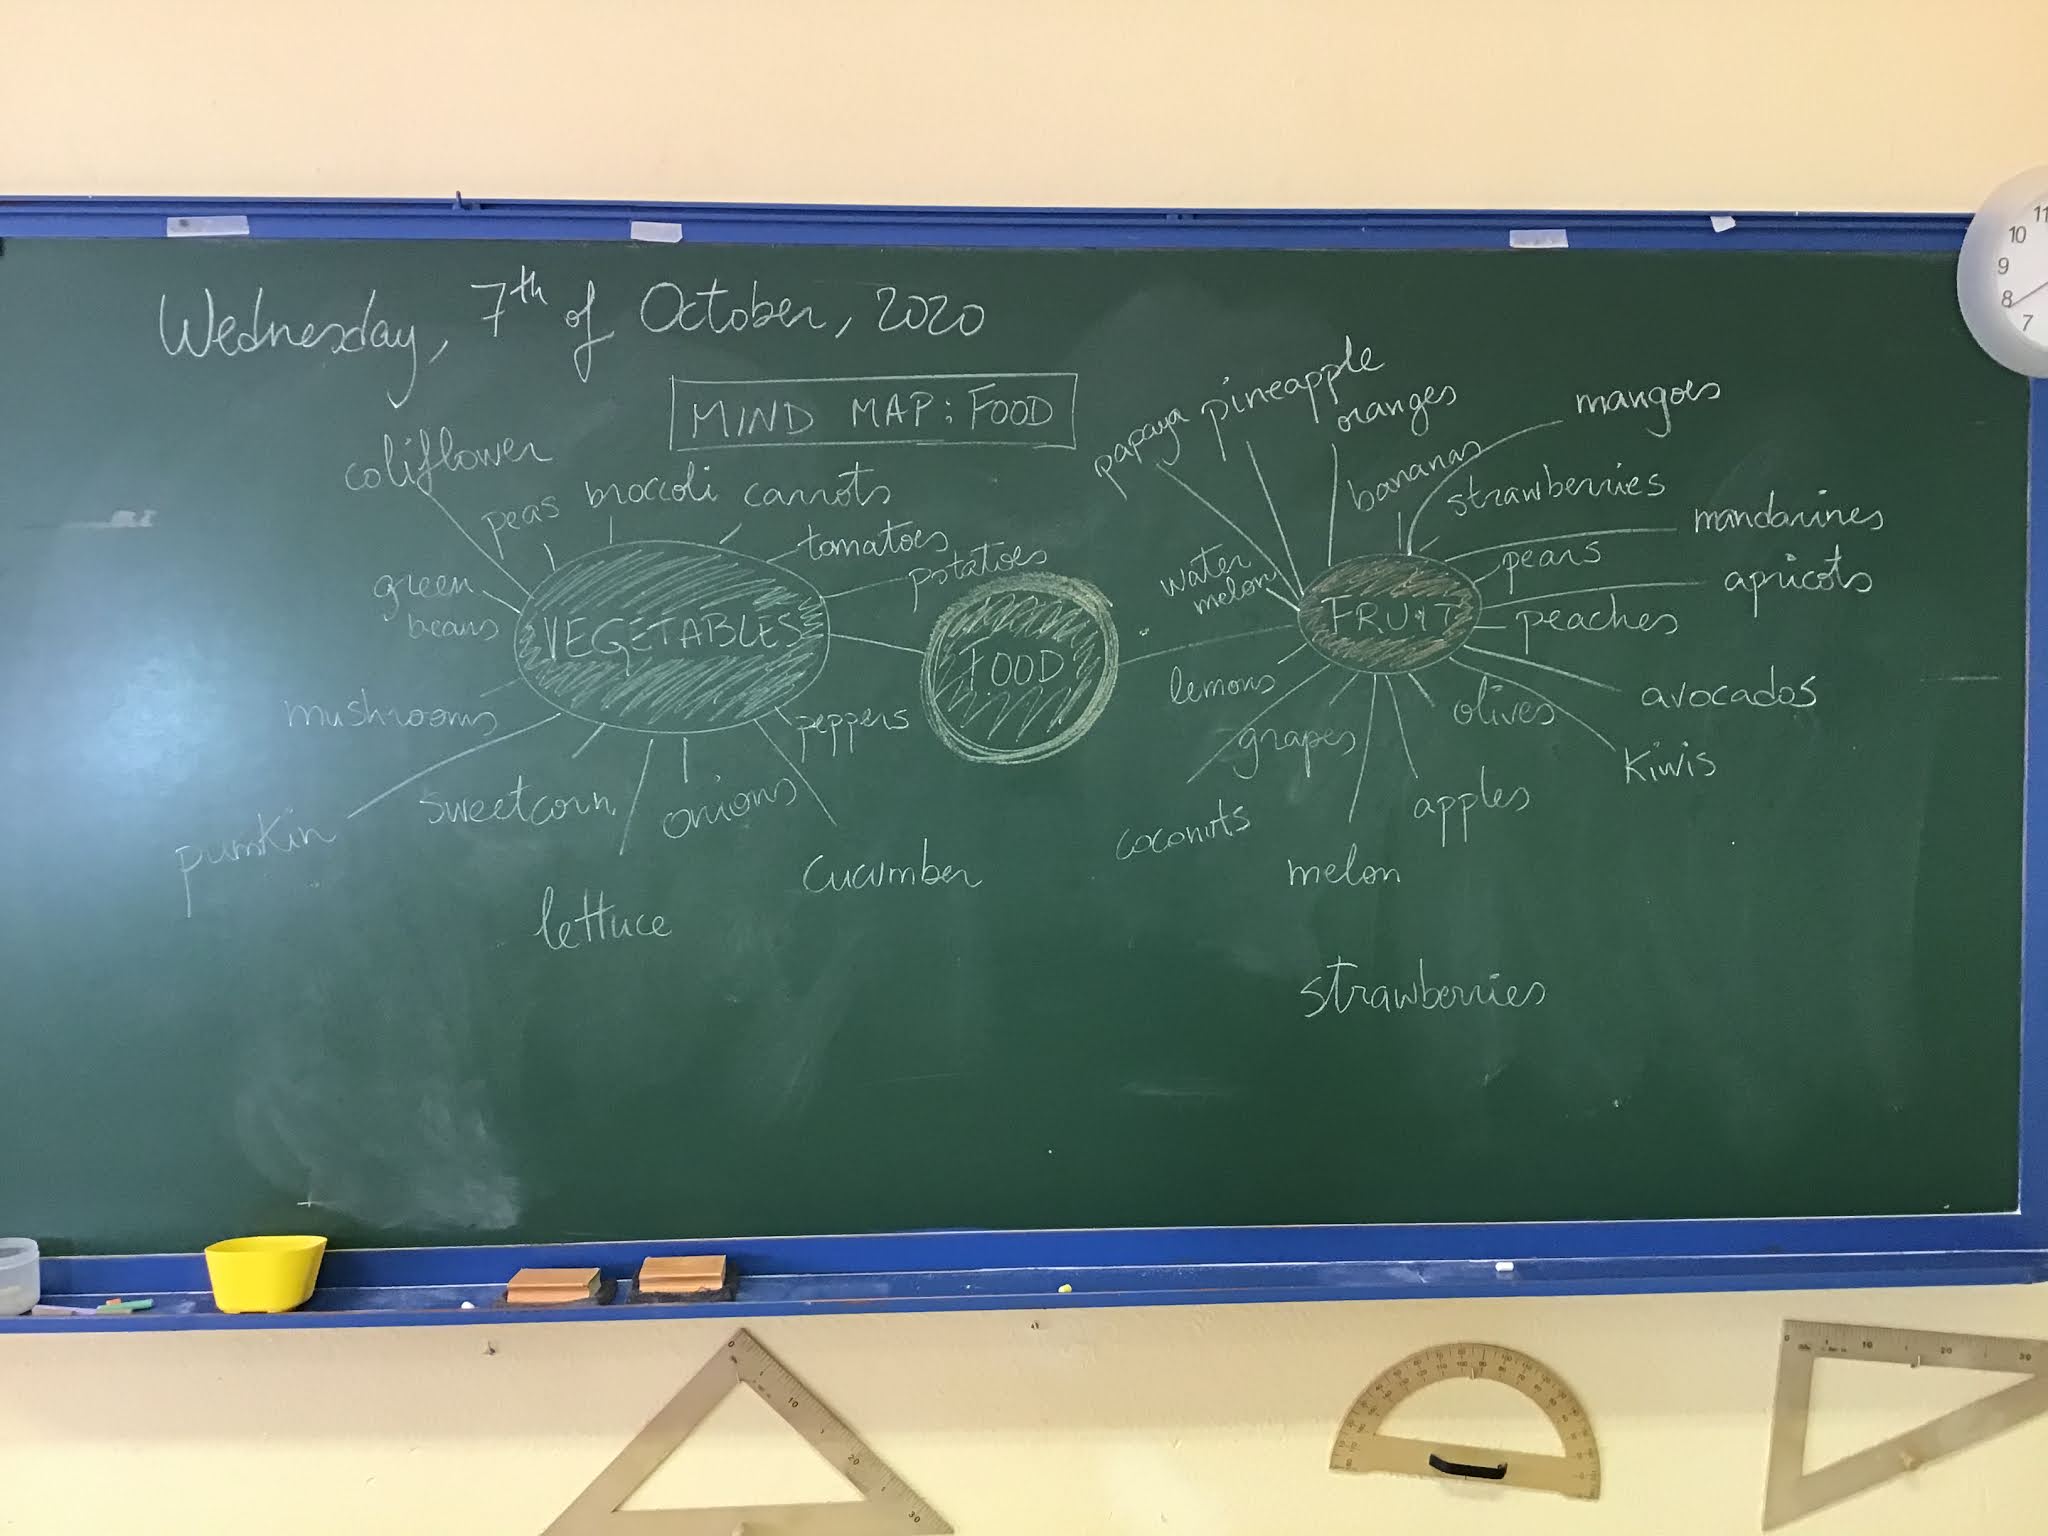 Wednesday, 7th of October, 2020
MIND MAP: FOOD
coliflower
peas
broccoli
carrots
tomatoes
potatoes
green
beans
VEGETABLES
mushrooms
pumkin
sweetcorn
lettuce
onions
cucumber
peppers
FOOD
papaya
pineapple
oranges
bananas
mangoes
strawberries
mandarines
pears
apricots
peaches
water
melon
FRUIT
lemons
grapes
coconuts
melon
apples
olives
kiwis
avocados
strawberries
11
10
9
8
7
0
10
20
30
0
10
20
30